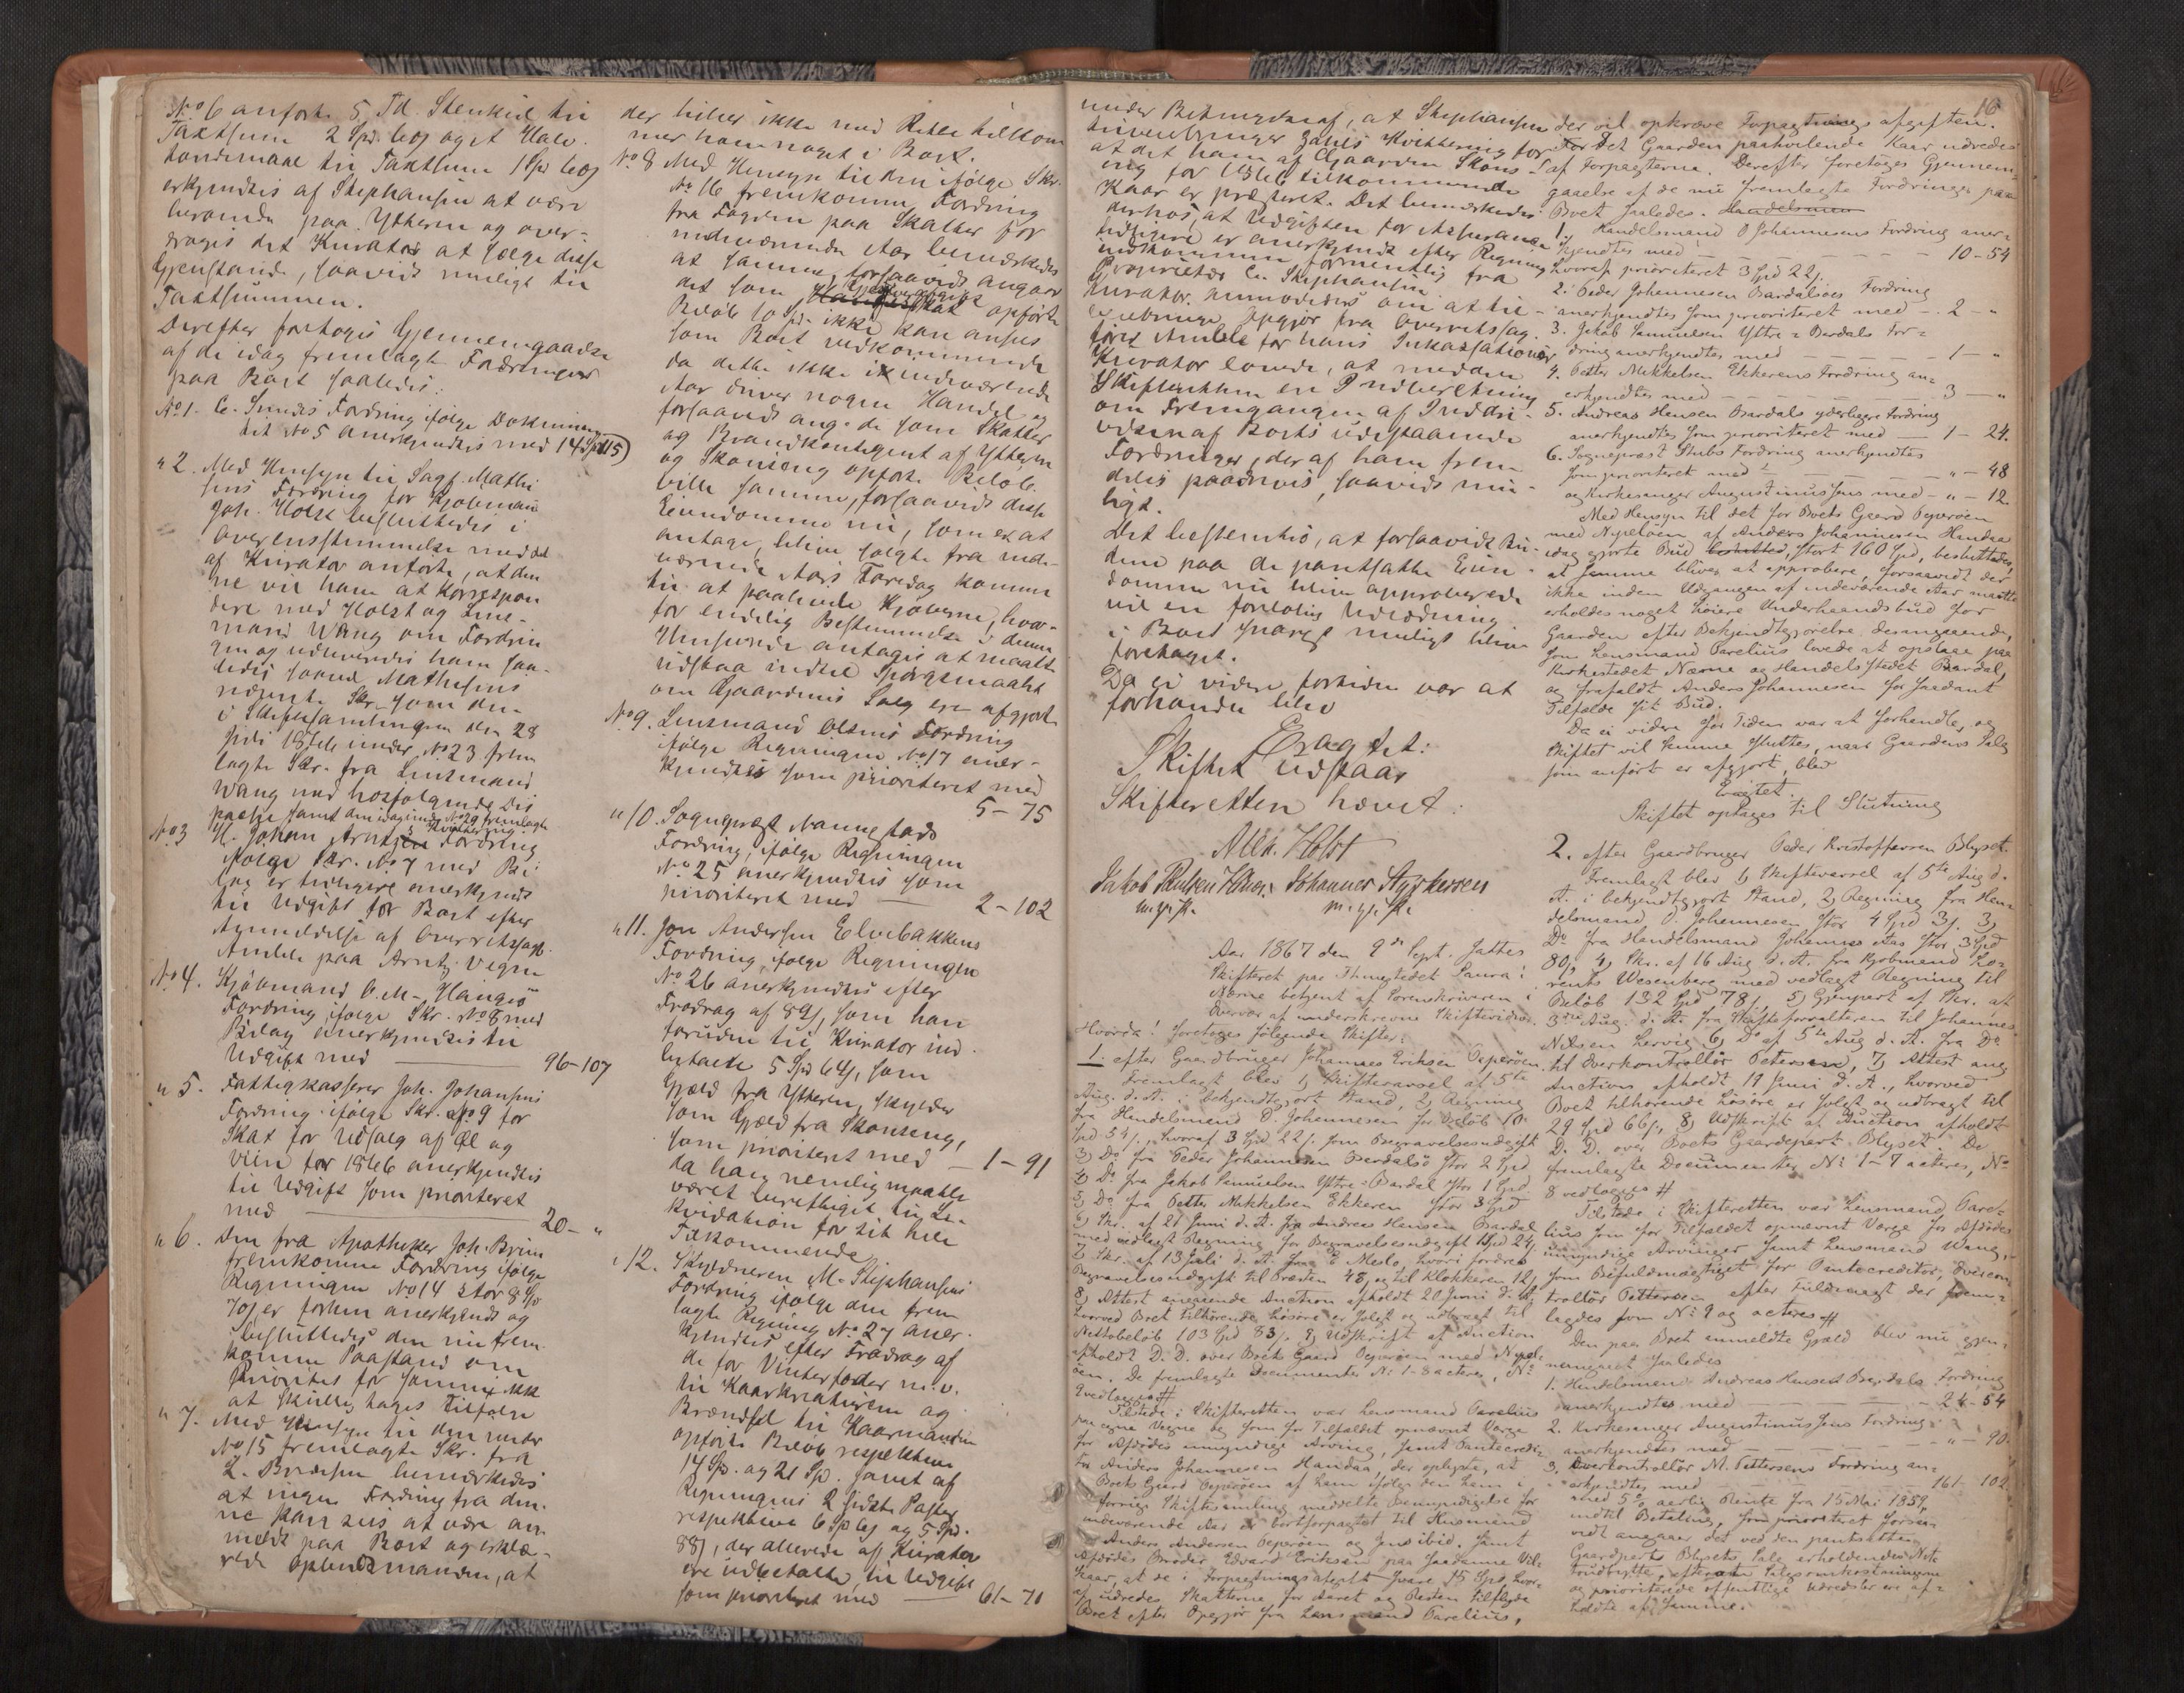 No 6 anførte 5 Td. Stenkul til
Taxtsum 2 Spd. 60s og et Halv-
tøndemaal til Taxtsum 1 Spd 60s
erkjendtes af Stephansen at være
beroende paa Ytteren og over-
droges det Kurator at sælge disse
Gjenstande, saavidt muligt til
Taxtsummen.
Derefter foretoges Gjennemgaaelse
af de idag fremlagte Fordringer
paa Boet saaledes:
No 1. C. Smiths Fordring ifølge Dokumen-
tet No 5 anerkjendtes med 14 Spd 115)
" 2. Med Hensyn til Sagf. Mathi
sens Fordring for Kjøbmand
Joh. Holst besluttedes i
Overensstemmelse med det
af Kurator anførte, at den
ne vil have at korrespon
dere med Holst og Lens-
mand Wang om Fordrin
gen og udleveredes ham saa-
ledes saavel Mathisens
nævnte Skr. som den
i Skiftesamlingen den 28
Juli 1866 under No 23 frem
lagte Skr. fra Lensmand
Wang med hosfølgende Dis
pache samt den idag under No 29 fremlagte
Kvittering.
No 3 H. Johan Arntzen Fordring
ifølge Skr. No 7 med Bi
lag er tidligere anerkjendt
til Udgift for Boet efter
Anmeldelse af Overretssagf.
Amble paa Arntz. Vegne
No 4. Kjøbmand O. M. Hanges
Fordring ifølge Skr. No 8 med
Bilag anerkjendtes til
Udgift med 96-107
" 5. Fattigkasserer Joh. Johansens
Fordring ifølge Skr. No 9 for
Skat for Udsalg af Øl og
Viin for 1866 anerkjendtes
til Udgift som prioriteret
med 20- "
" 6. Den fra Apotheker Joh. Brun
fremkomne Fordring ifølge
Regningen No 14 stor 8 Spd
70s er forhen anerkjendt og
besluttedes den nu frem-
komne Paastand om
Prioritet for samme ikke
at skulle tages tilfølge
" 7. Med Hensyn til den under
No 15 fremlagte Skr. fra
L. Brodersen bemærkedes
at ingen Fordring fra den-
ne kan sees at være an
meldt paa Boet og erklæ-
rede Opbudsmanden, at
der heller ikke med Rette tilkom
mer ham noget i Boet.
No 8 Med Hensyn til den ifølge Skr.
No 16 fremkomne Fordring
fra Fogden paa Skatter for
indeværende Aar bemærkedes
at samme, forsaavidt angaar
det som opførte
Beløb 10 Spd. ikke kan ansees
som Boet vedkommende
da dette ikke i indeværende
Aar driver nogen Handel og
forsaavidt ang. de som Skatter
og Brandkontigent af Ytteren
og Skonseng opført Beløb
ville samme, forsaavidt disse
Eiendomme nu, som er at
antage, blive solgte fra inde-
værende Aars Faredag komme
til at paahvile Kjøberne, hvor-
for endelig Bestemmelse i denne
Henseende antages at maatte
udstaa indtil Spørgsmaalet
om Gaardenes Salg ere afgjort
No 9. Lensmand Olsens Fordring
ifølge Regningen No 17 aner-
kjendtes som prioriteret med
5-75
" 10. Sognepræst Nannestads
Fordring, ifølge Regningen
No 25 anerkjendtes som
prioriteret med 2-102
" 11. Jon Andersen Elvebakkens
Fordring, ifølge Regningen
No 26 anerkjendtes efter
Fradrag af 89s, som han
foruden til Kurator ind-
betalte 5 Spd 64s, som
Gjæld fra Ytteren, skylder
som Gjæld fra Skonseng,
som prioriteret med 1-91
da han nemlig maatte
været berettiget til Li-
kvidation for sit hele
Tilkommende
" 12. Skyldneren M. Stephansens
Fordring ifølge den frem
lagte Regning No 27 aner-
kjendtes efter Fradrag af
de for Vinterfoder m.v.
til Kaarkreaturene og
Brændsel til Kaarmanden
opførte Beløb respektive
14 Spd. og 21 Spd. samt af
Regningens 2 sidste Poster
respektive 6 Spd 6s og 5 Spd.
88s, der allerede af Kurator
ere udbetalte, til Udgift
som prioriteret med 61-71
16
under Betingelse af, at Stephansen
tilveiebringer Kvittering for
at det ham af Gaarden Skons-
eng for 1866 tilkommende
Kaar er præsteret. Det bemærkedes
derhos, at Udgiften for Assurance
tidligere er anerkjendt efter Regning
indkommen formentlig fra
Proprietær C. Stephansen.
Kurator anmodedes om at til-
veiebringe Opgjør fra Overretssag-
fører Amble for hans Inkassationer
Kurator lovede, at meddele
Skifteretten en Indberetning
om Fremgangen af Inddri-
velsen af Boets udestaaende
Fordringer, der af ham frem-
deles paadrives, saavidt mu-
ligt.
Det bestemtes, at forsaavidt Bu-
dene paa de pantsatte Eien-
domme nu bliver approberede
vil en foreløbig Udlodning
i Boet snarest muligt blive
foretaget.
Da ei videre fortiden var at
forhandle blev
Eragtet:
Skiftet udstaar
Skifteretten hævet.
Alex. Holst
Jakob Paulsen Johannes Styrkersen
m. p. P. m. p. P.
Aar 1867 den 9de Sept. sattes
Skifteret paa Thingstedet Saura i
Nærne betjent af Sorenskriveren i
Overvær af underskrevne Skiftevidner.
Hvorda! foretoges følgende Skifter:
1. efter Gaardbruger Johannes Eriksen Oeperøen.
Fremlagt blev 1) Skiftevarsel af 5te
Aug. d. A. i bekjendtgjort Stand, 2) Regning
fra Handelsmand O. Johannesen for Beløb 10
Spd 54s, hvoraf 3 Spd. 22s. som Begravelsesudgift
3) Do fra Peder Johannesen Bardalsø stor 2 Spd
4) Do fra Jakob Samuelsen Yttre-Bardal stor 1 Spd
5) Do fra Petter Mikkelsen Ekkeren stor 3 Spd
6) Skr. af 21 Juni d. A. fra Andreas Hansen Bardal
med vedlagt Regning for Begravelsesudgift 1 Spd 24s.
7) Skr. af 13 Juli d. A. fra E Meslo, hvori fordres
Begravelsesudgift til Præsten 48s, og til Klokkeren 12s.
8) Attest angaaende Auction afholdt 20 Juni d. A.
hvorved Boet tilhørende Løsøre er solgt og udbragt til
Nettobeløb 103 Spd 83s. 9) Udskrift af Auction
afholdt D. D. over Boets Gaard Oeperøen med Nypel-
øen. De fremlagte Documenter No 1-8 acteres, No
9 vedlægges #
Tilstede i Skifteretten var Lensmand Parelius
paa egne Vegne og som for Tilfældet opnævnt Værge
for Afdødes umyndige Arving, samt Pantecredi-
tor Anders Johannesen Handaa, der oplyste, at
Boets Gaard Oeperøen af ham ifølge den ham i
forrige Skiftesamling meddelte Bemyndigelse for
indeværende Aar er bortforpagtet til Husmand
Anders Andersen Oeperøen og Jens ibid. samt
Afdødes Broder Edvard Eriksen paa saadanne Vil-
kaar, at de i Forpagtningsafgift svare 15 Spd, hvor-
af udredes Skatterne for Aaret og Resten tilflyde
Boet efter Opgjør fra Lensmand Parelius,
der vil opkræve Forpagtnings afgiften.
For det Gaarden paahvilende Kaar udredes
af Forpagterne. Derefter foretoges Gjennem-
gaaelse af de nu fremlagte Fordringer paa
Boet saaledes. Handelsmen
1. Handelsmand O Johannesens Fordring aner-
kjendtes med 10-54
hvoraf prioriteret 3 Spd 22s.
2. Peder Johannesen Bardalsøes Fordring
anerkjendtes som prioriteret med 2 - "
3. Jakob Samuelsen Yttre-Bardals For-
dring anerkjendtes med 1 - "
4. Petter Mikkelsen Ekkerens Fordring an-
erkjendtes med 3 - "
5. Andreas Hansen Bardals yderligere Fordring
anerkjendtes som prioriteret med 1 - 24.
6. Sognepræst Stubs Fordring anerkjendtes
som prioriteret med " - 48
og Kirkesanger Augustinussens med - " - 12.
Med Hensyn til det for Boets Gaard Oeperøen
med Nypeløen af Anders Johannesen Handaa
idag gjorte Bud, stort 160 Spd, besluttedes,
at samme bliver at approbere, forsaavidt der
ikke inden Udgangen af indeværende Aar maatte
erholdes noget høiere Underhaandsbud for
Gaarden efter Bekjendtgjørelse desangaaende,
som Lensmand Parelius lovede at opslaae paa
Kirkestedet Nærne og Handelsstedet Bardal,
og frafaldt Anders Johannesen for saadant
Tilfælde sit Bud.
Da ei videre for Tiden var at forhandle, og
Skiftet vil kunne sluttes, naar Gaardens Salg
som anført er afgjort, blev
Eragtet.
Skiftet optages til Slutning
2. efter Gaardbruger Peder Kristoffersen Blyset.
Fremlagt blev 1) Skiftevarsel af 5te Aug d.
A. i bekjendtgjort Stand, 2) Regning fra Han-
delsmand O. Johannesen stor 4 Spd 3s. 3)
Do fra Handelsmand Johannes Aas stor 3 Spd
80s, 4) Skr. af 16 Aug d. A. fra Kjøbmand Lo-
rents Wesenberg med vedlagt Regning til
Beløb 132 Spd 78s, 5) Gjenpart af Skr. af
3die Aug. d. A. fra Skifteforvalteren til Johannes
Nilsen Lervig 6) Do af 5te Aug d. A. fra Do
til Overkontrollør Petersen, 7) Attest ang
Auction afholdt 19 Juni d. A., hvorved
Boet tilhørende Løsøre er solgt og udbragt til
29 Spd 66s, 8) Udskrift af Auction afholdt
D. D. over Boets Gaardepart Blyset. De
fremlagte Documenter No 1-7 acteres, No
8 vedlægges #
Tilstede i Skifteretten var Lensmand Pare-
lius som for Tilfældet opnævnt Værge for Afdødes
umyndige Arvinger samt Lensmand Wang,
som Befuldmægtiget for Pantecreditor, Overcon-
trollør Pettersen efter Fuldmagt der frem-
lagdes som No 9 og acteres #
Den paa Boet anmeldte Gjæld blev nu gjen-
nemgaaet saaledes
1. Handelsmand Andreas Hansen Bardals Fordring
anerkjendtes med 24-54
2. Kirkesanger Augustinussens Fordring
anerkjendtes med " - 90.
3. Overkontrollør M. Pettersens Fordring an-
erkjendtes med 161- 102
med 5% aarlig Rente fra 15 Mai 1859,
indtil Betaling, som prioriteret forsaa-
vidt angaaer det ved den pantsatte
Gaardparts Blysets Salg erholdendes Net-
toudbytte, efterat Salgsomkostningerne
og prioriterede offentlige Udredsler ere af-
holdte af samme.